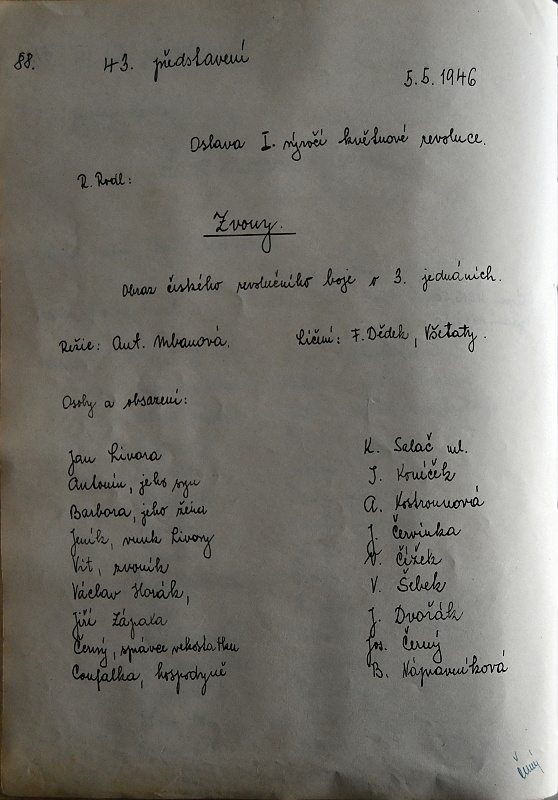 88.
43. představení
5.5.1946
Oslava I. výročí květnové revoluce.
R. Rodl:
Zvony.
Obraz českého revolučního boje o 3. jednáních.
Režie: Ant. Urbanová. Líčení: F. Dědek, Všetaty.
Osoby a obsazení:
Jan Livora K. Salač ml.
Antonín, jeho syn J. Koníček
Barbora, jeho žena A. Kostrounová
Jeník, vnuk Livory J. Červinka
Vít, zvoník V. Čížek
Václav Horák, V. Šebek
Jiří Zápala J. Dvořák
Černý, správce velkostatku Jos. Černý
Coufalka, hospodyně B. Nápravníková